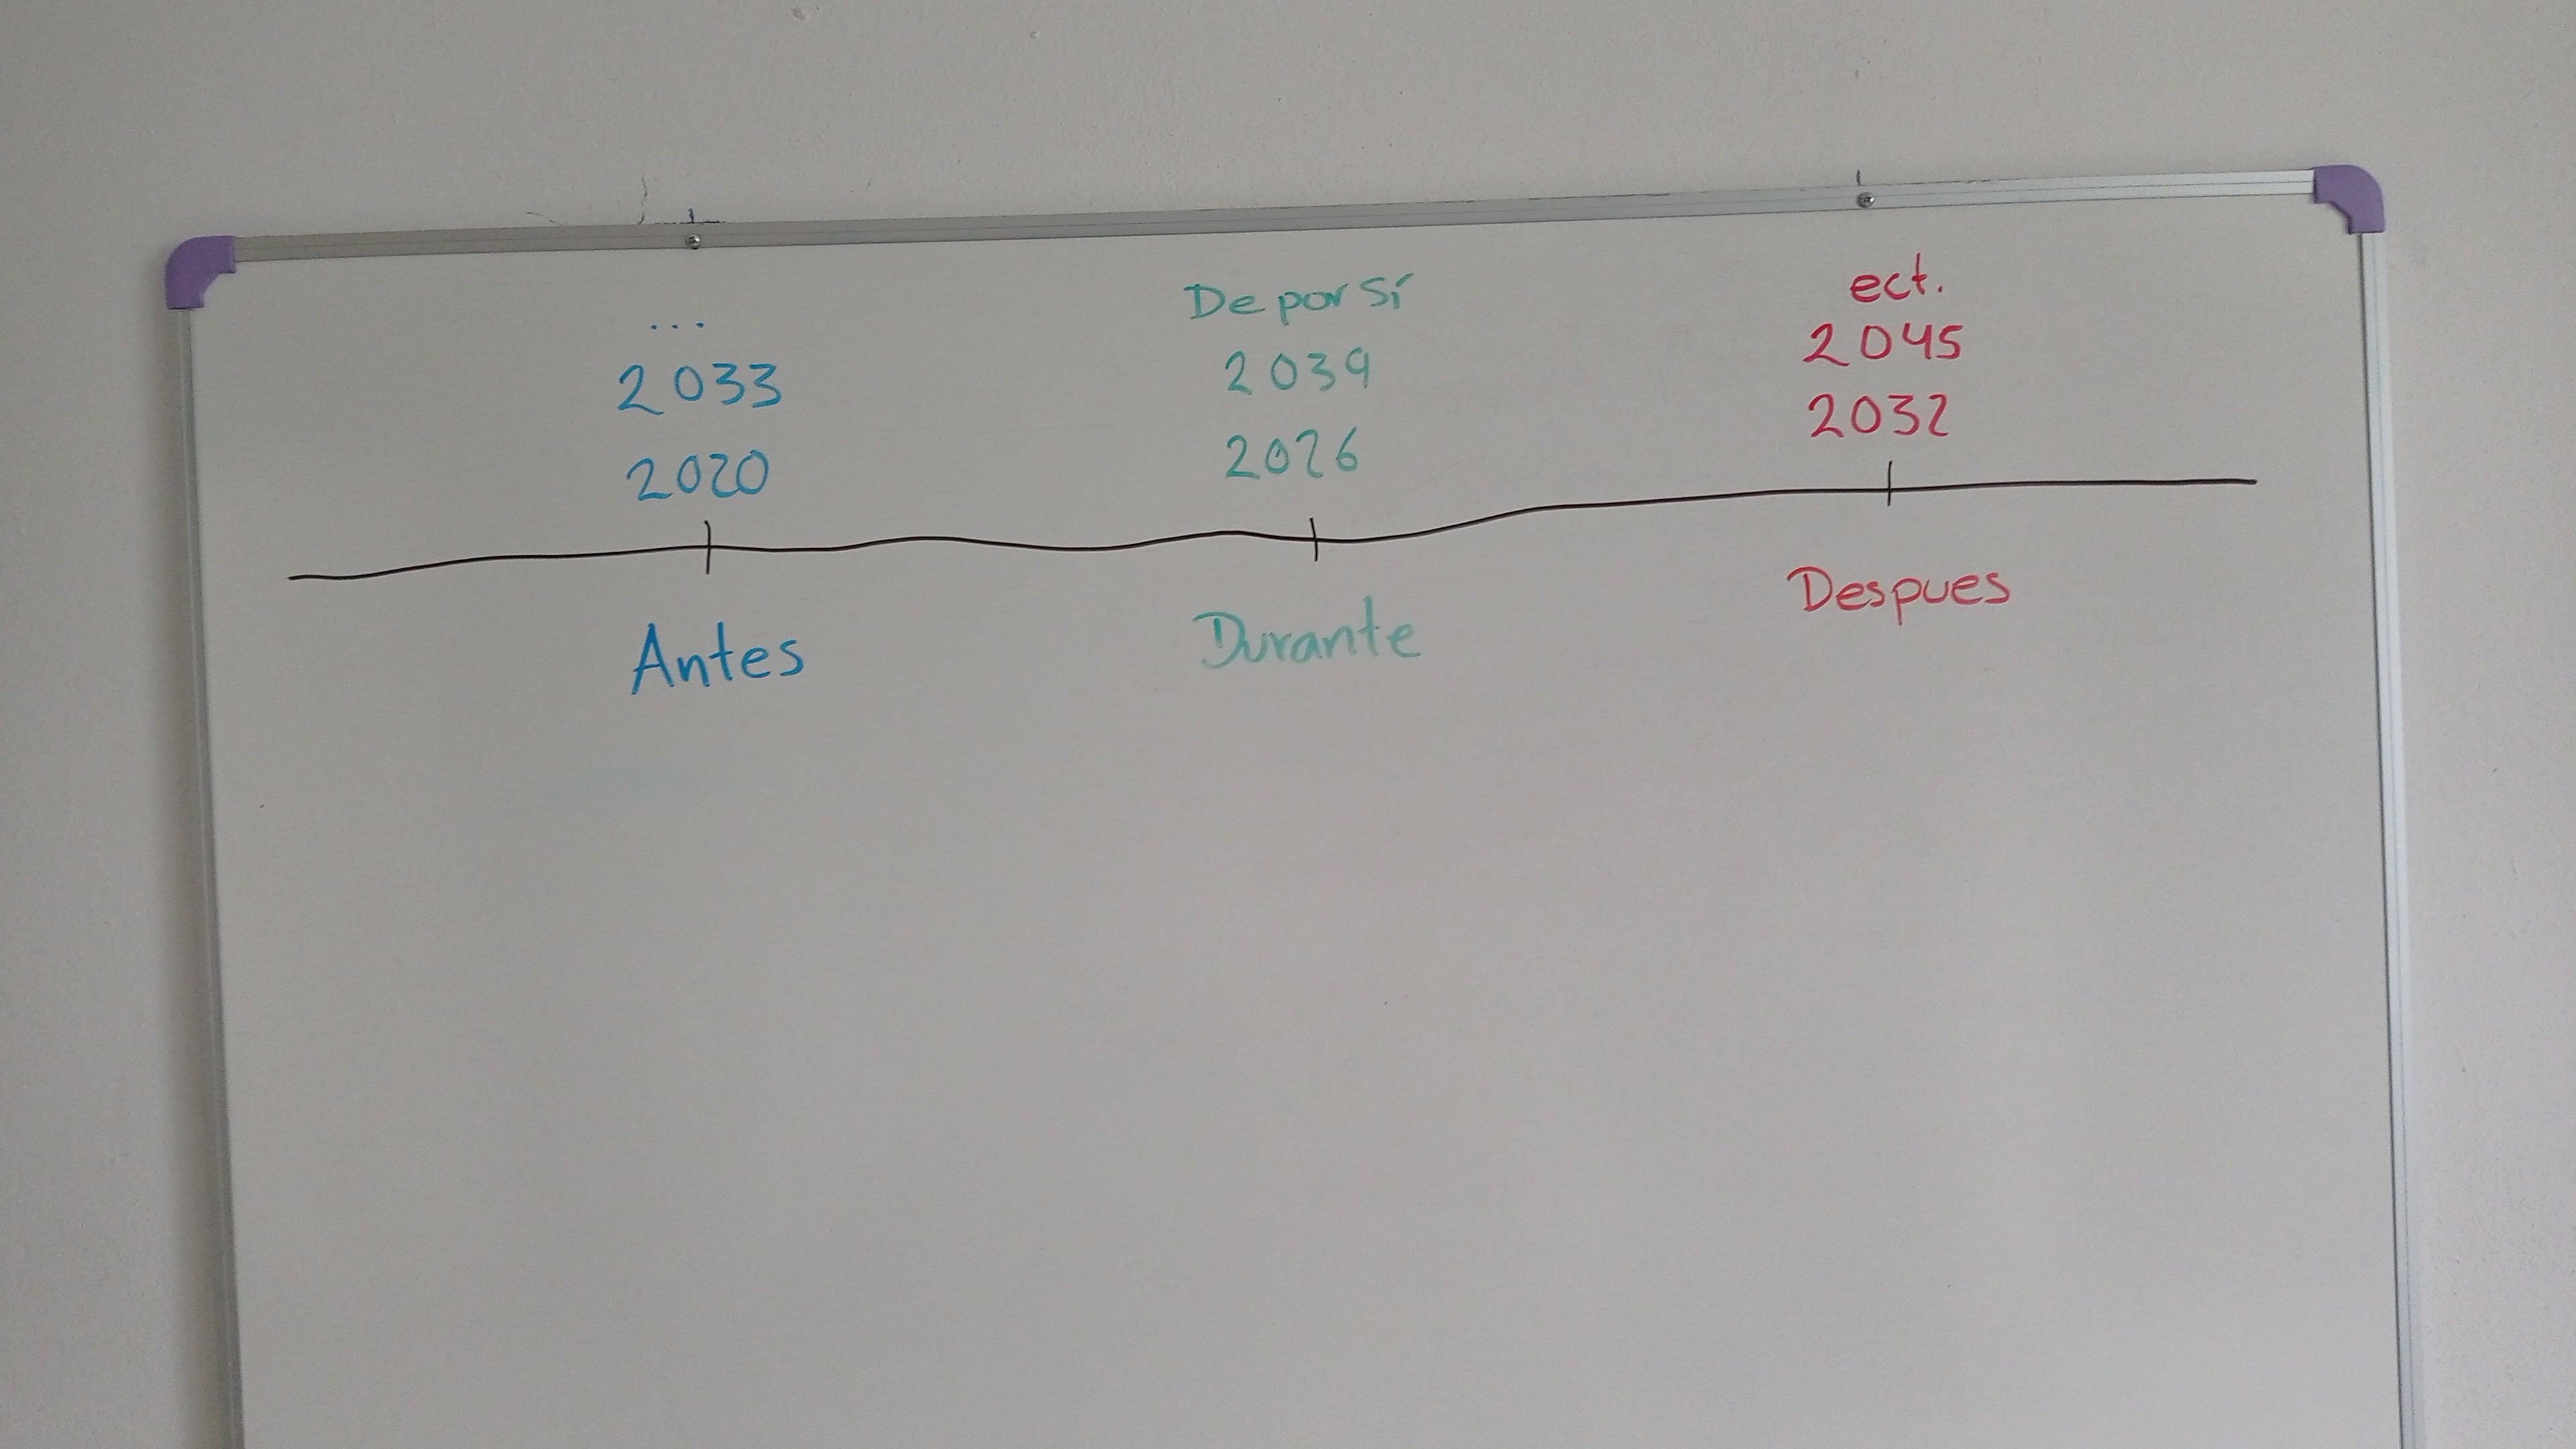 ...
2033
2020
Antes
De por Sí
2039
2026
Durante
ect.
2045
2032
Despues